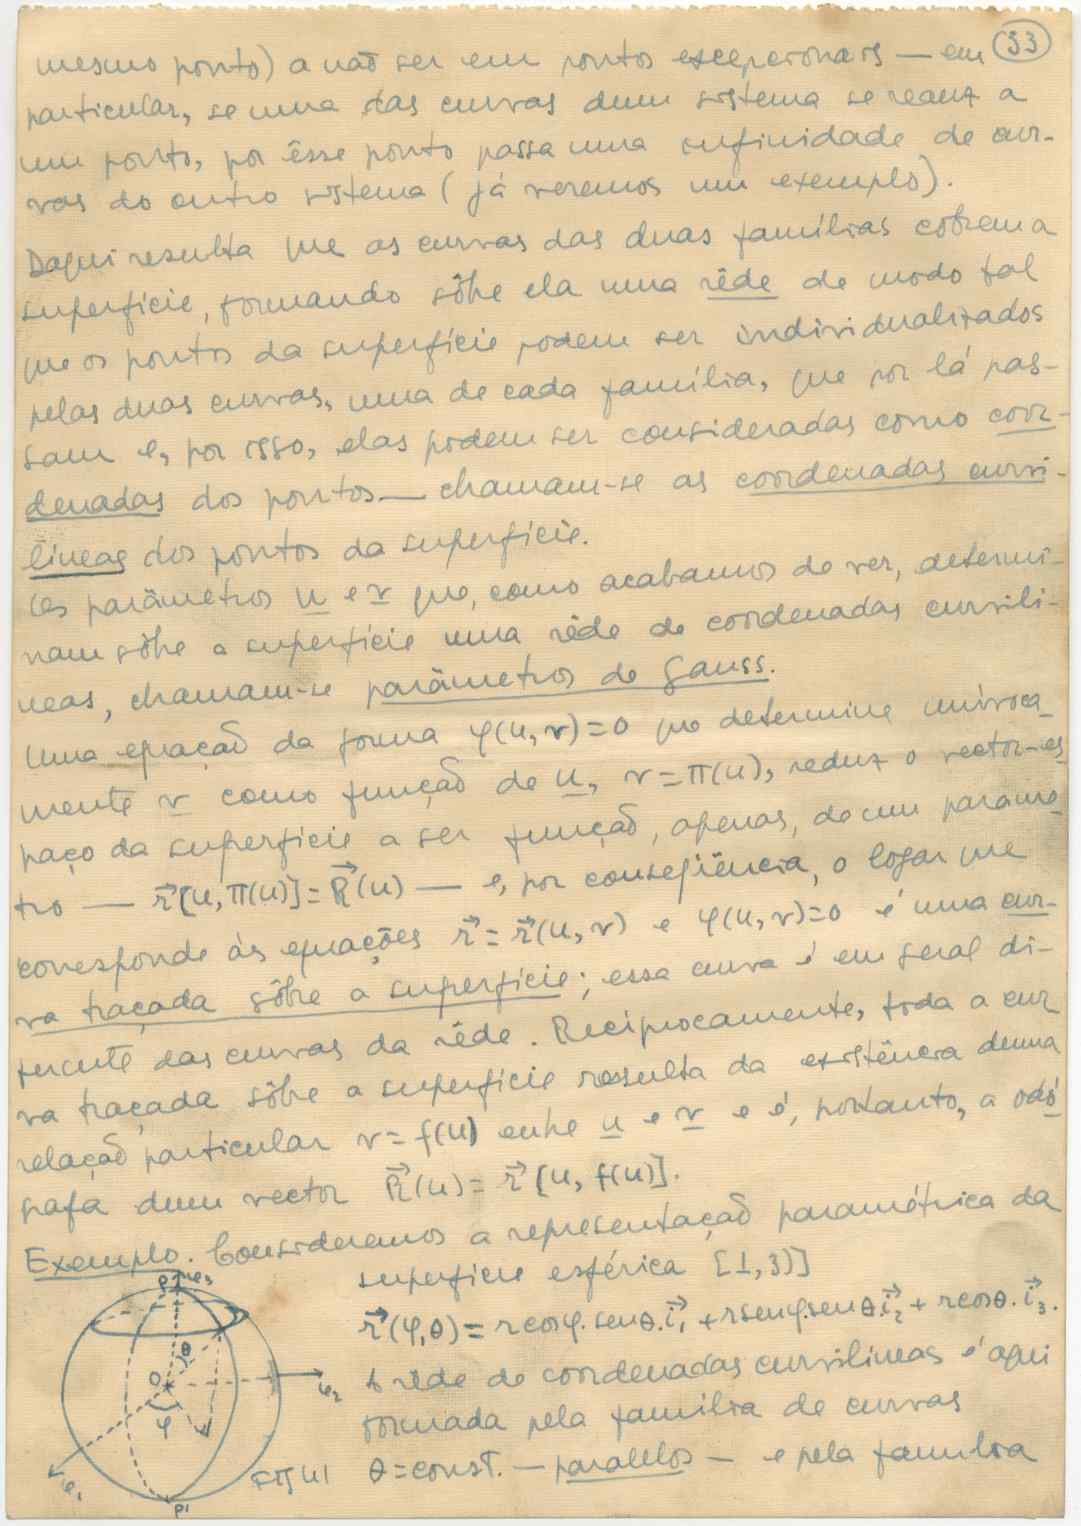 33
mesmo ponto) a não ser em pontos excepcionais — em
particular, se uma das curvas dum sistema se reduz a
um ponto, por êsse ponto passa uma infinidade de cur-
vas do outro sistema (já veremos um exemplo).
Daqui resulta que as curvas das duas famílias cobrem a
superfície, formando sôbre ela uma rêde de modo tal
que os pontos da superfície podem ser individualizados
pelas duas curvas, uma de cada família, que por lá pas-
sam e, por isso, elas podem ser consideradas como coor-
denadas dos pontos — chamam-se as coordenadas curvi-
líneas dos pontos da superfície.
Os parâmetros u e v que, como acabamos de ver, determi-
nam sôbre a superfície uma rêde de coordenadas curvilí-
neas, chamam-se parâmetros de Gauss.
Uma equação da forma φ(u,v)=0 que determine unívoca-
mente v como função de u, v=π(u), reduz o vector-es
paço da superfície a ser função, apenas, de um parâme
tro — r⃗[u,π(u)]=R⃗(u) — e, por conseqüência, o logar que
corresponde às equações r⃗=r⃗(u,v) e φ(u,v)=0 é uma cur-
va traçada sôbre a superfície; essa curva é em geral di-
ferente das curvas da rêde. Reciprocamente, toda a cur
va traçada sôbre a superfície resulta da existência duma
relação particular v=f(u) entre u e v e é, portanto, a odó
grafa dum vector R⃗(u)=r⃗[u,f(u)].
Exemplo. Consideremos a representação paramétrica da
superfície esférica [1,3)]
r⃗(φ,θ)=rcosφ.senθ.i⃗₁+rsenφ.senθ.i⃗₂+rcosθ.i⃗₃.
A rêde de coordenadas curvilíneas é aqui
formada pela família de curvas
θ=const. — paralelos — e pela família
P
θ
O
φ
P'